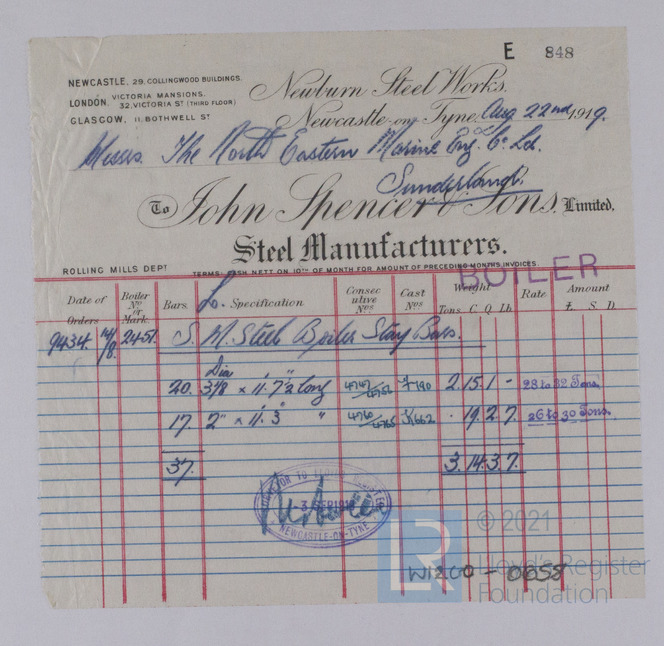 E 848
NEWCASTLE, 29. COLLINGWOOD BUILDINGS.
LONDON, VICTORIA MANSIONS.
32. VICTORIA ST (THIRD FLOOR)
GLASGOW, 11. BOTHWELL ST
Newburn Steel Works.
Newcastle-on-Tyne, Aug 22nd 1919.
Messrs. The North Eastern Marine Eng. Co Ld.
Sunderland.
To John Spencer & Sons, Limited.
Steel Manufacturers.
ROLLING MILLS DEPT
TERMS: CASH NETT ON 10TH OF MONTH FOR AMOUNT OF PRECEDING MONTHS INVOICES.
BOILER
Date of Orders Boiler No or Mark. Bars. Specification Consecutive Nos Cast Nos Weight Rate Amount
Tons. C. Q. Lb. £. S. D.
9434. 14/8. 2451. S. M. Steel Boiler Stay Bars.
Dia
20. 3 1/8 x 11. 7 1/2 Long 4747/4752 7190 2. 15. 1 - 28 to 32 Tons.
17. 2" x 11. 3" " 4760/4765 . 19. 2 7. 26 to 30 Tons.
37. 3. 14. 3. 7.
SURVEYOR TO LLOYD'S REGISTER
3 SEP 1919
NEWCASTLE-ON-TYNE
LR
© 2021
Lloyd's Register
Foundation
W1200 - 0058